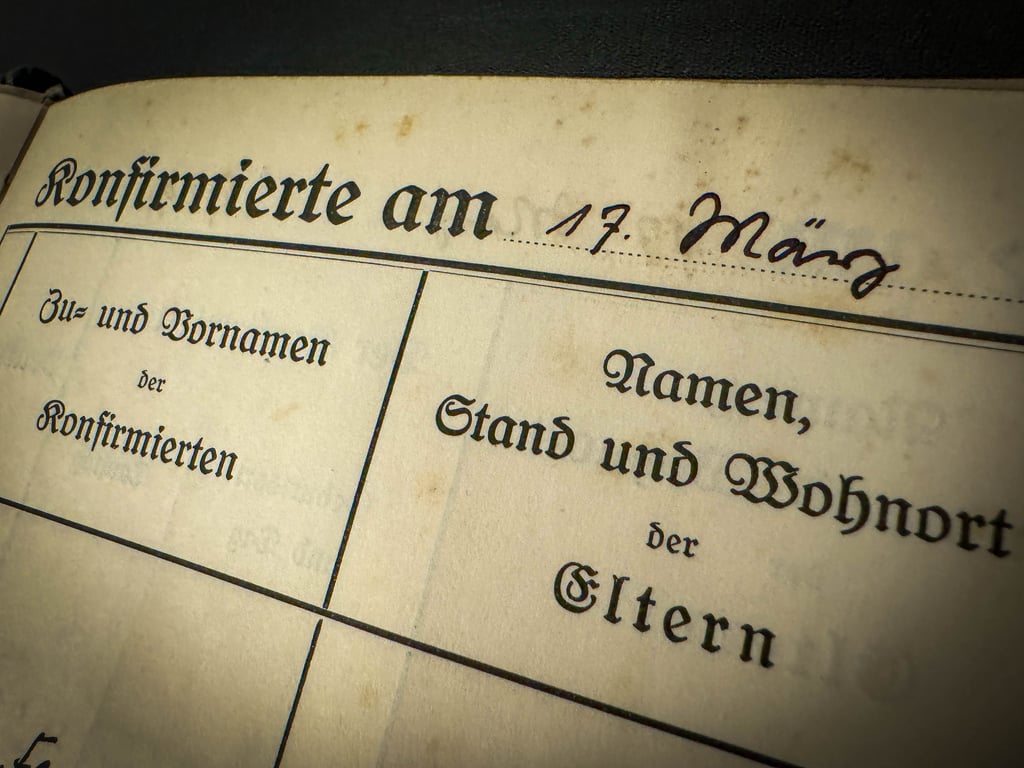 Konfirmierte am 17. März
Zu- und Vornamen
der
Konfirmierten
Namen,
Stand und Wohnort
der
Eltern